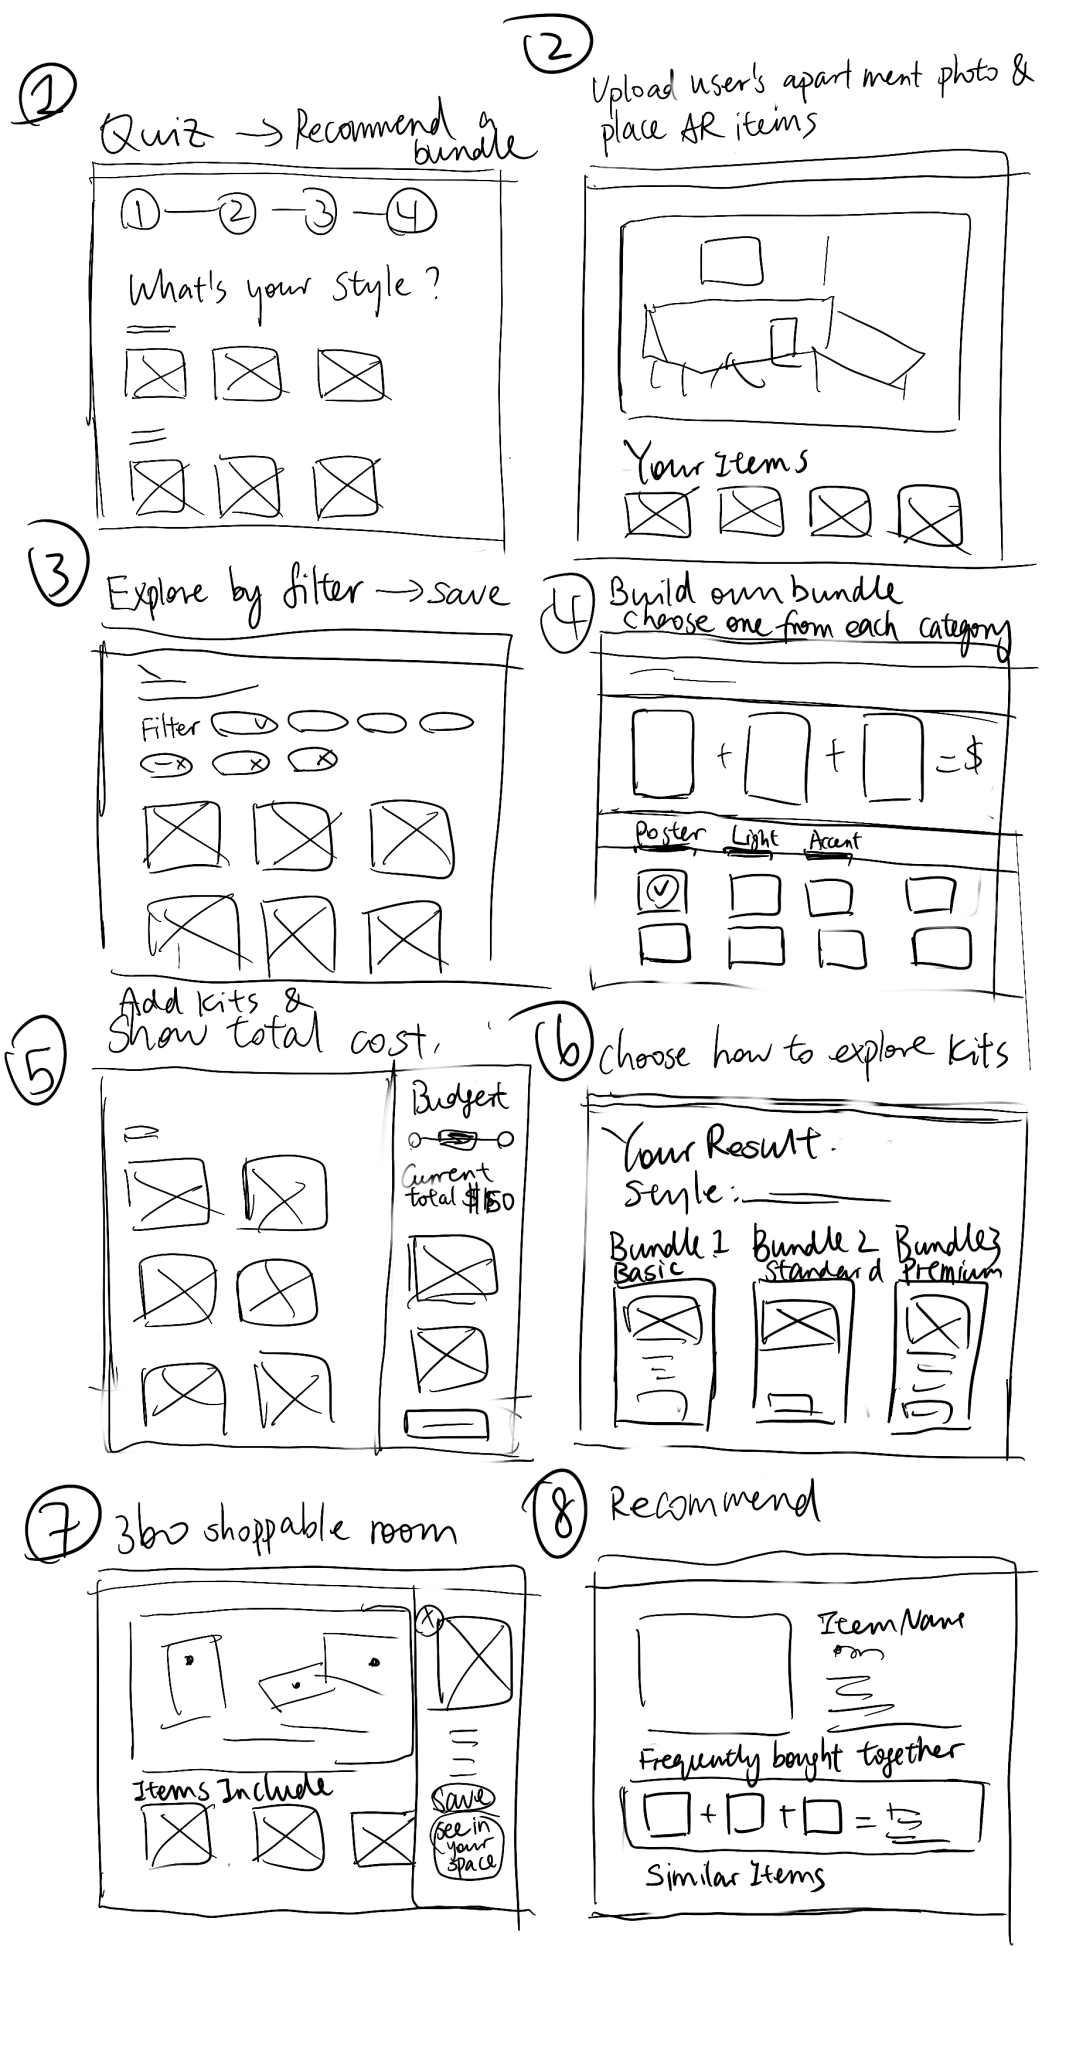 1
Quiz → Recommend a
bundle
1 — 2 — 3 — 4
What's your style?
2
Upload user's apartment photo &
place AR items
Your Items
3
Explore by filter → save
Filter
4
Build own bundle
choose one from each category
+ + = $
Poster Light Accent
5
Add kits &
Show total cost.
Budgert
Current
total $150
6
choose how to explore kits
Your Result.
Style:
Bundle 1 Bundle 2 Bundle 3
Basic Standard Premium
7
360 shoppable room
X
Items Include
Save
see in
your
space
8
Recommend
Item Name
Frequently bought together
+ + =
Similar Items